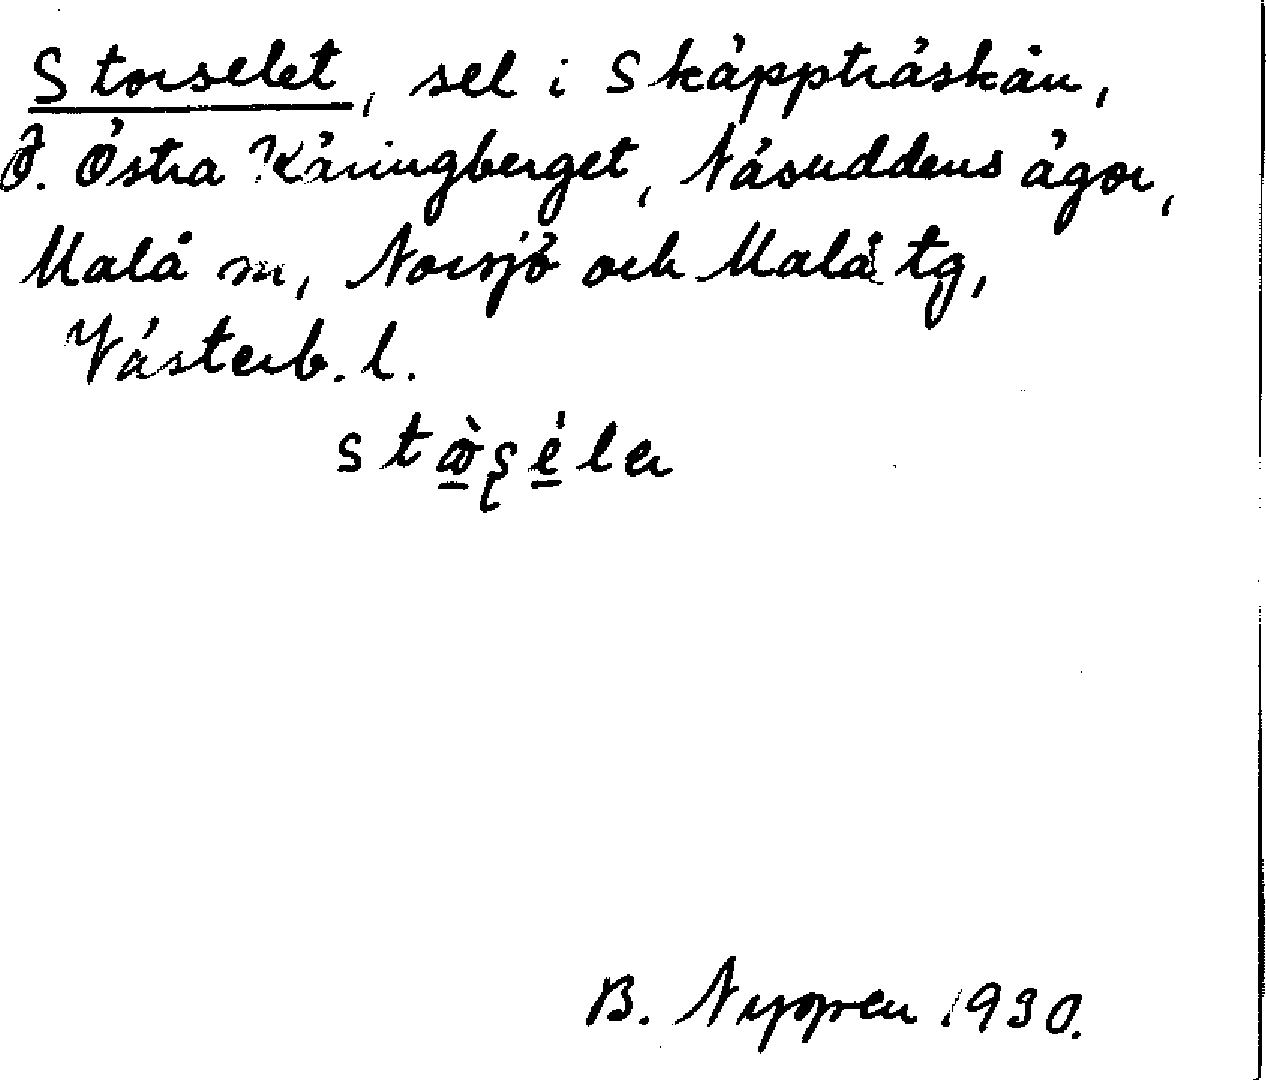 Storselet, sel i Skäppträskån,
Ö. Östra Käringberget, Näsuddens ägor,
Malå sn, Norsjö och Malå tg,
Västerb. l.
B. Nygren 1930.